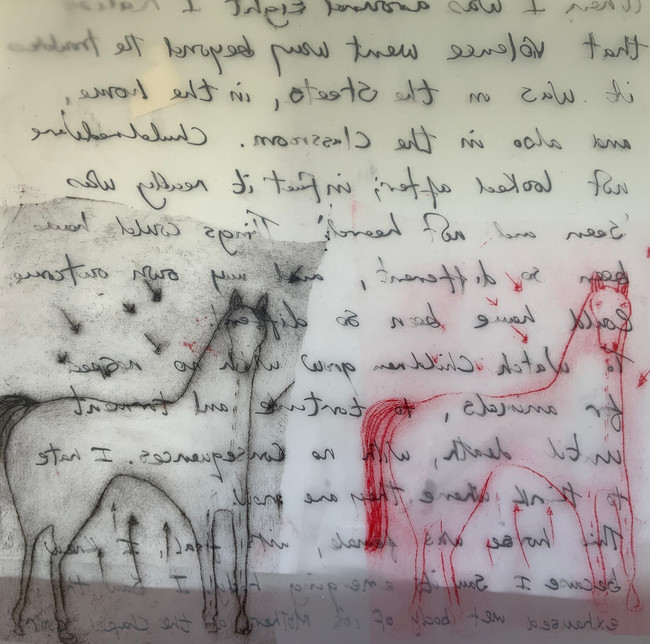 When I was around Eight I
that violence went way beyond the troubles
it was on the streets, in the home,
and also in the classroom. Children were
not looked after; infact it really was
'seen and not heard'. Things could have
been so different, and my own outcome
could have been so different
To watch children grow with no respect
for animals, to torture and torment
until death, with no consequences. I hate
to think where they are now.
This horse was female, with foal, I know
because I saw its emerging body I saw the
exhaused wet body of its Mother at the Chapel